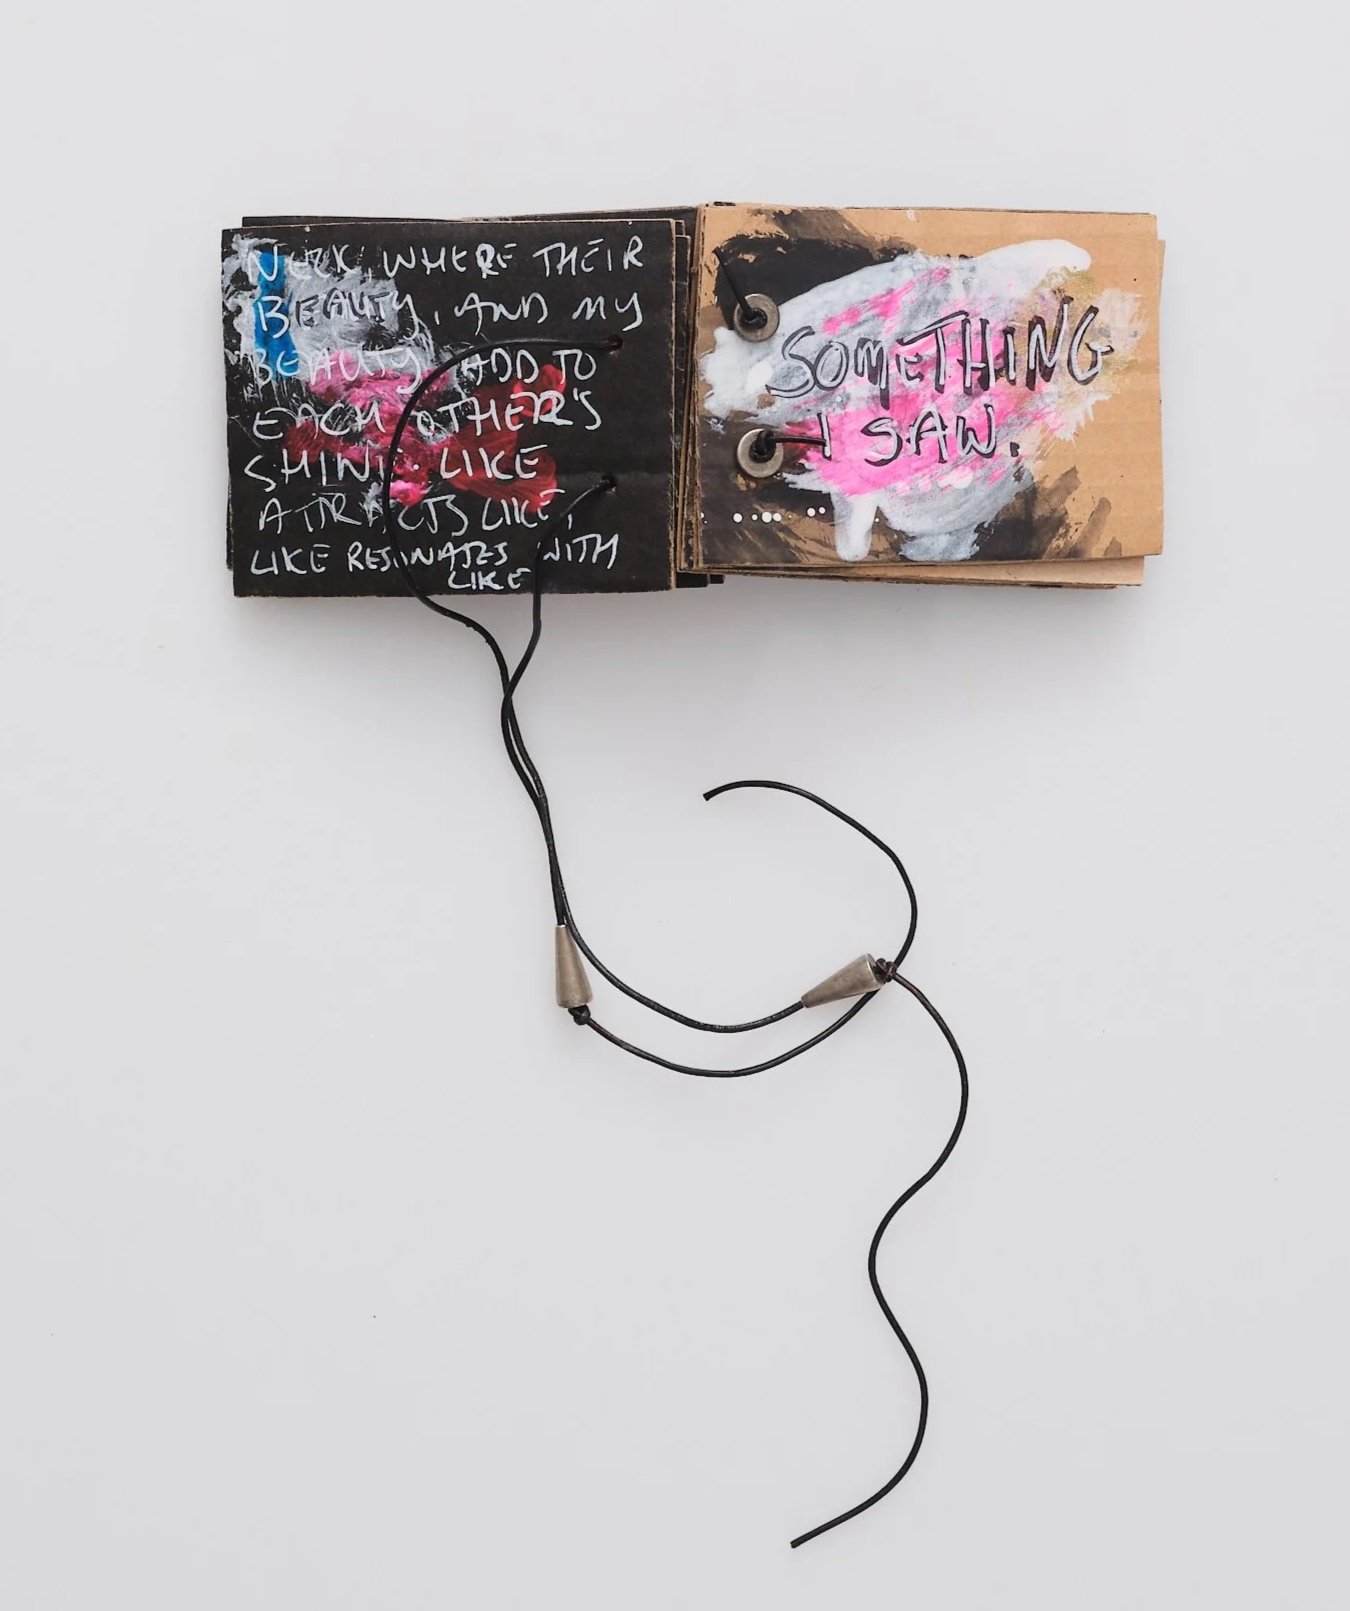 NECK, WHERE THEIR
BEAUTY, AND MY
BEAUTY ADD TO
EACH OTHER'S
SHINE. LIKE
ATTRACTS LIKE,
LIKE RESONATES WITH
LIKE
SOMETHING
I SAW.